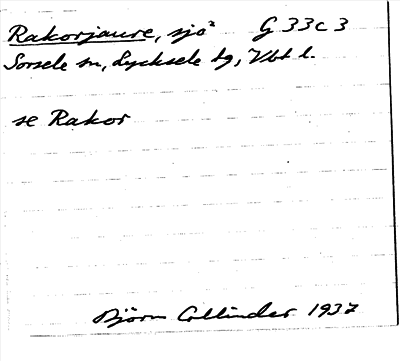 Rakorjaure, sjö² G 33c3
Sorsele sn, Lycksele tg, Vbt l.
se Rakor
Björn Collinder 1937